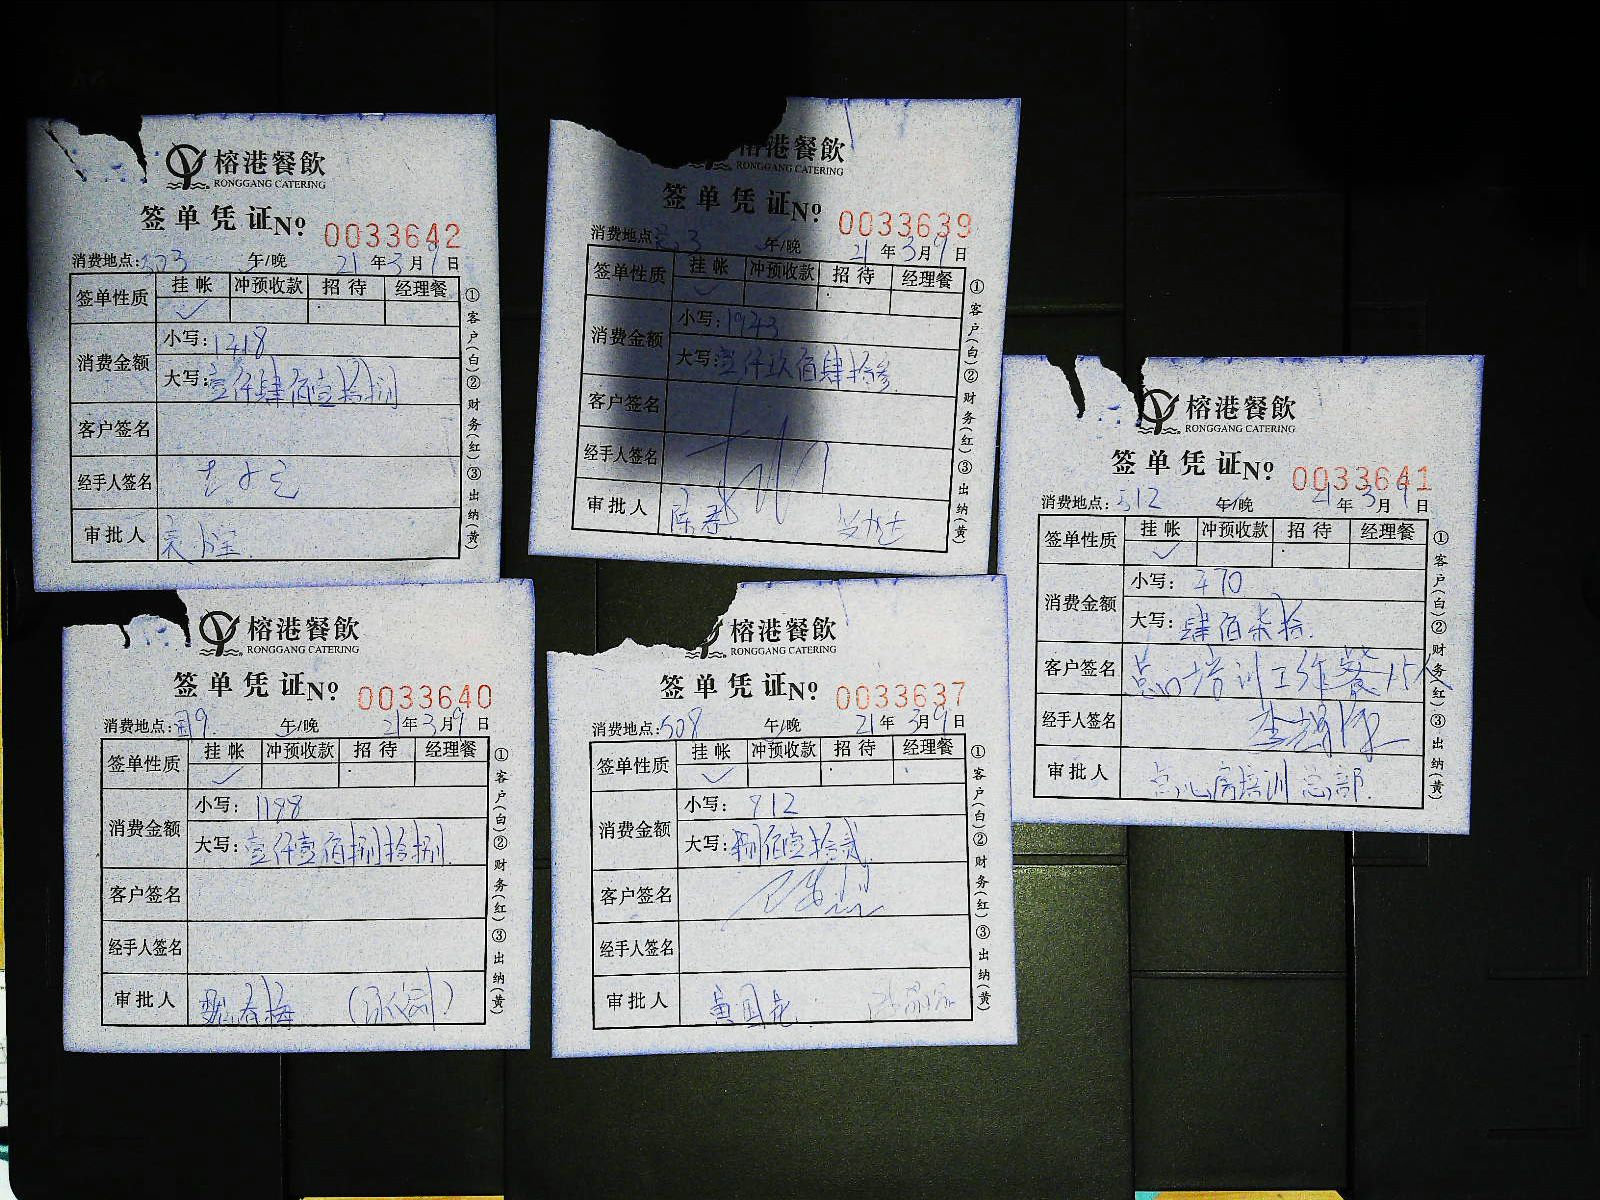 榕港餐飲
RONGGANG CATERING
签单凭证 Nº 0033642
消费地点: 503 午/晚 21年3月9日
签单性质 挂帐 冲预收款 招待 经理餐
✓
消费金额 小写: 1418
大写: 壹仟肆佰壹拾捌
客户签名
经手人签名
审批人
①客户(白)②财务(红)③出纳(黄)
榕港餐飲
RONGGANG CATERING
签单凭证 Nº 0033639
消费地点: 午/晚 21年3月9日
签单性质 挂帐 冲预收款 招待 经理餐
✓
消费金额 小写: 1943
大写: 壹仟玖佰肆拾参
客户签名
经手人签名
审批人 陈春
①客户(白)②财务(红)③出纳(黄)
榕港餐飲
RONGGANG CATERING
签单凭证 Nº 0033641
消费地点: 512 午/晚 21年3月9日
签单性质 挂帐 冲预收款 招待 经理餐
✓
消费金额 小写: 470
大写: 肆佰柒拾
客户签名 点心培训工作餐15人
经手人签名
审批人 点心房培训 总部
①客户(白)②财务(红)③出纳(黄)
榕港餐飲
RONGGANG CATERING
签单凭证 Nº 0033640
消费地点: 午/晚 21年3月9日
签单性质 挂帐 冲预收款 招待 经理餐
✓
消费金额 小写: 1188
大写: 壹仟壹佰捌拾捌
客户签名
经手人签名
审批人 魏春梅
①客户(白)②财务(红)③出纳(黄)
榕港餐飲
RONGGANG CATERING
签单凭证 Nº 0033637
消费地点: 508 午/晚 21年3月9日
签单性质 挂帐 冲预收款 招待 经理餐
✓
消费金额 小写: 812
大写: 捌佰壹拾贰
客户签名
经手人签名
审批人 黄国花
①客户(白)②财务(红)③出纳(黄)